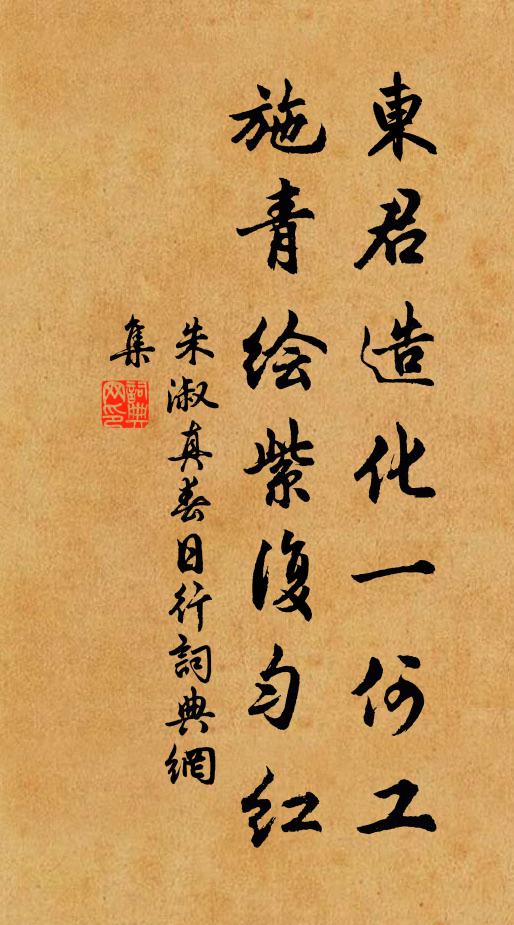 東君造化一何工
施青绘紫復匀红
朱淑真春日行詞典網
集
詞典
网印